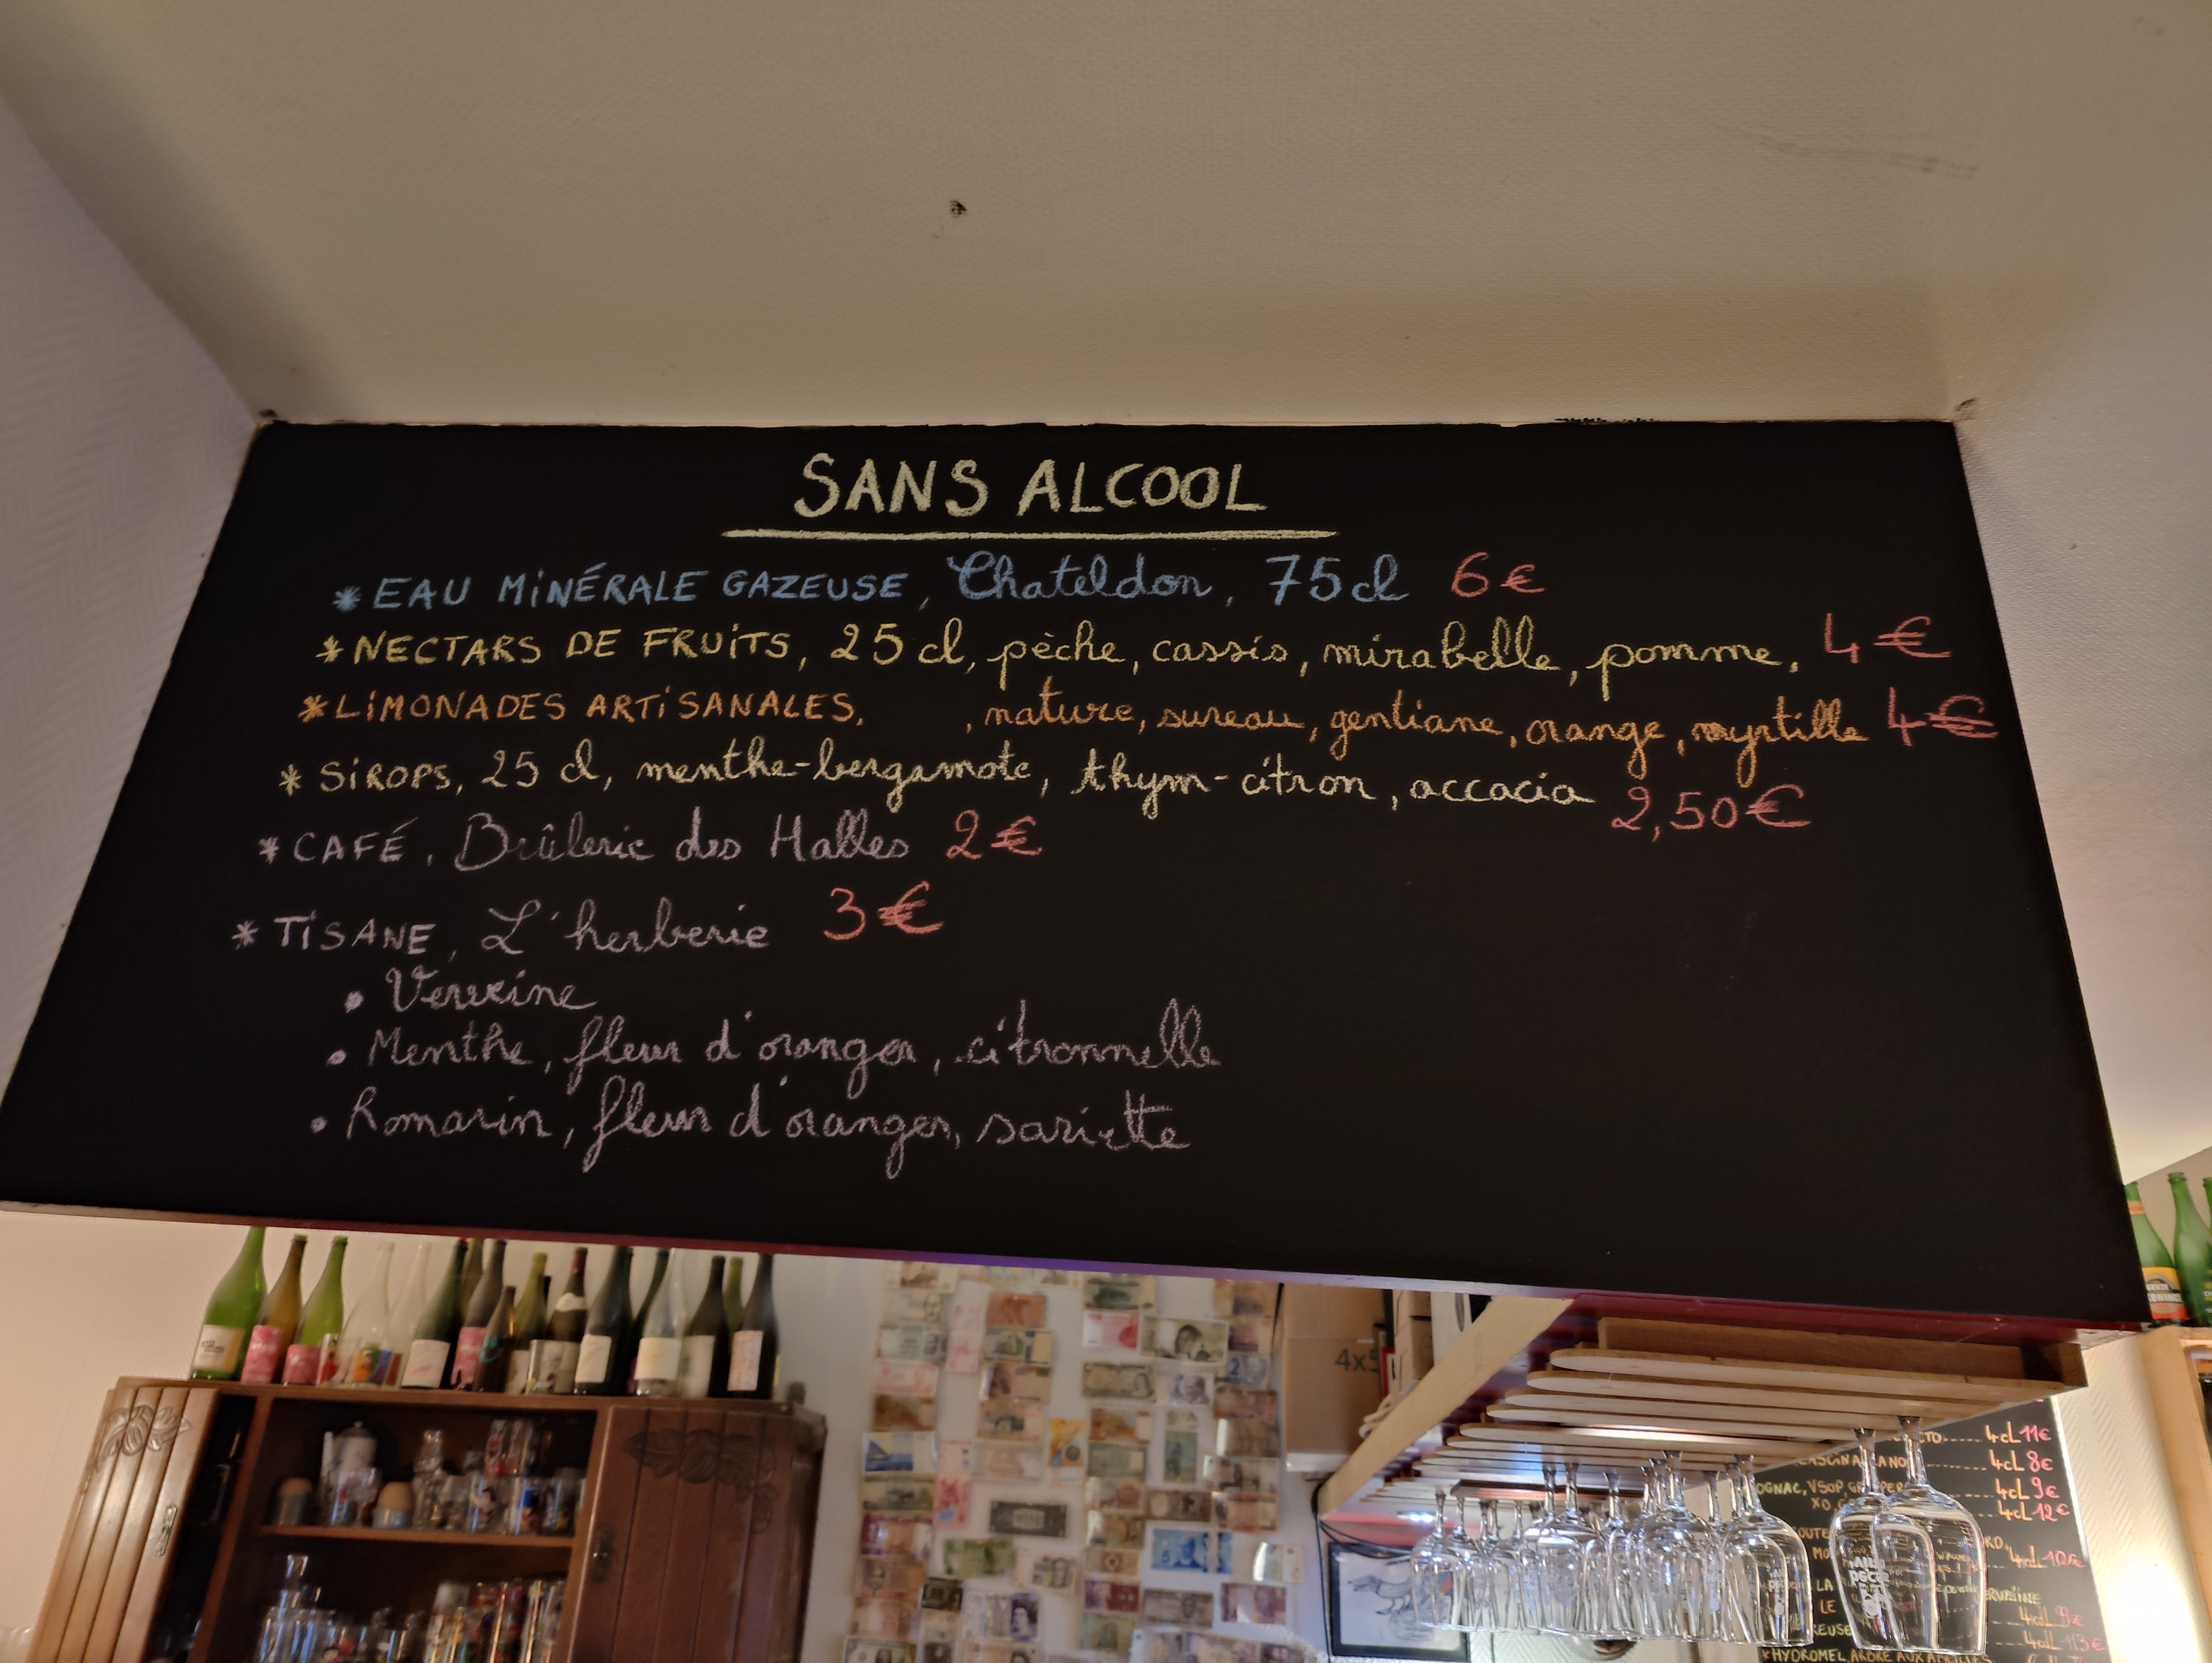 SANS ALCOOL
* EAU MINÉRALE GAZEUSE, Chateldon, 75 cl 6€
* NECTARS DE FRUITS, 25 cl, pèche, cassis, mirabelle, pomme, 4€
* LIMONADES ARTISANALES, , nature, sureau, gentiane, orange, myrtille 4€
* SIROPS, 25 cl, menthe-bergamote, thym-citron, accacia 2,50€
* CAFÉ, Brûlerie des Halles 2€
* TISANE, L'herberie 3€
• Verveine
• Menthe, fleur d'oranger, citronnelle
• Romarin, fleur d'oranger, sariette
4x5
4cL 11€
4cL 8€
4cL 9€
XO 4cL 12€
4cL 10€
4cL 9€
4cL 13€
* HYDROMEL,